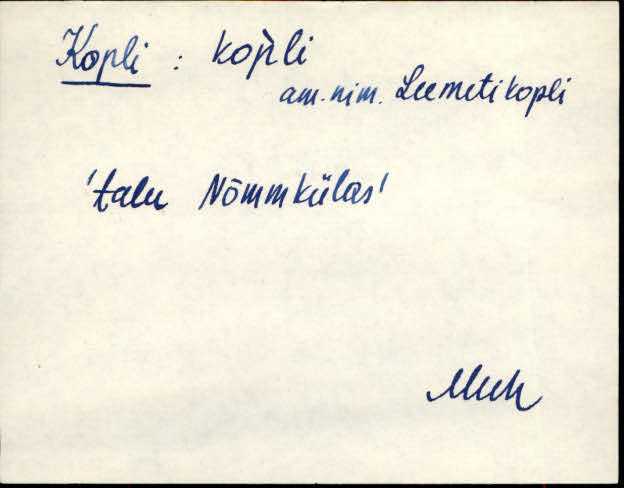 Kopli : kop̀li
am. nim. Leemeti kopli
'talu Nõmmkülas'
Muh